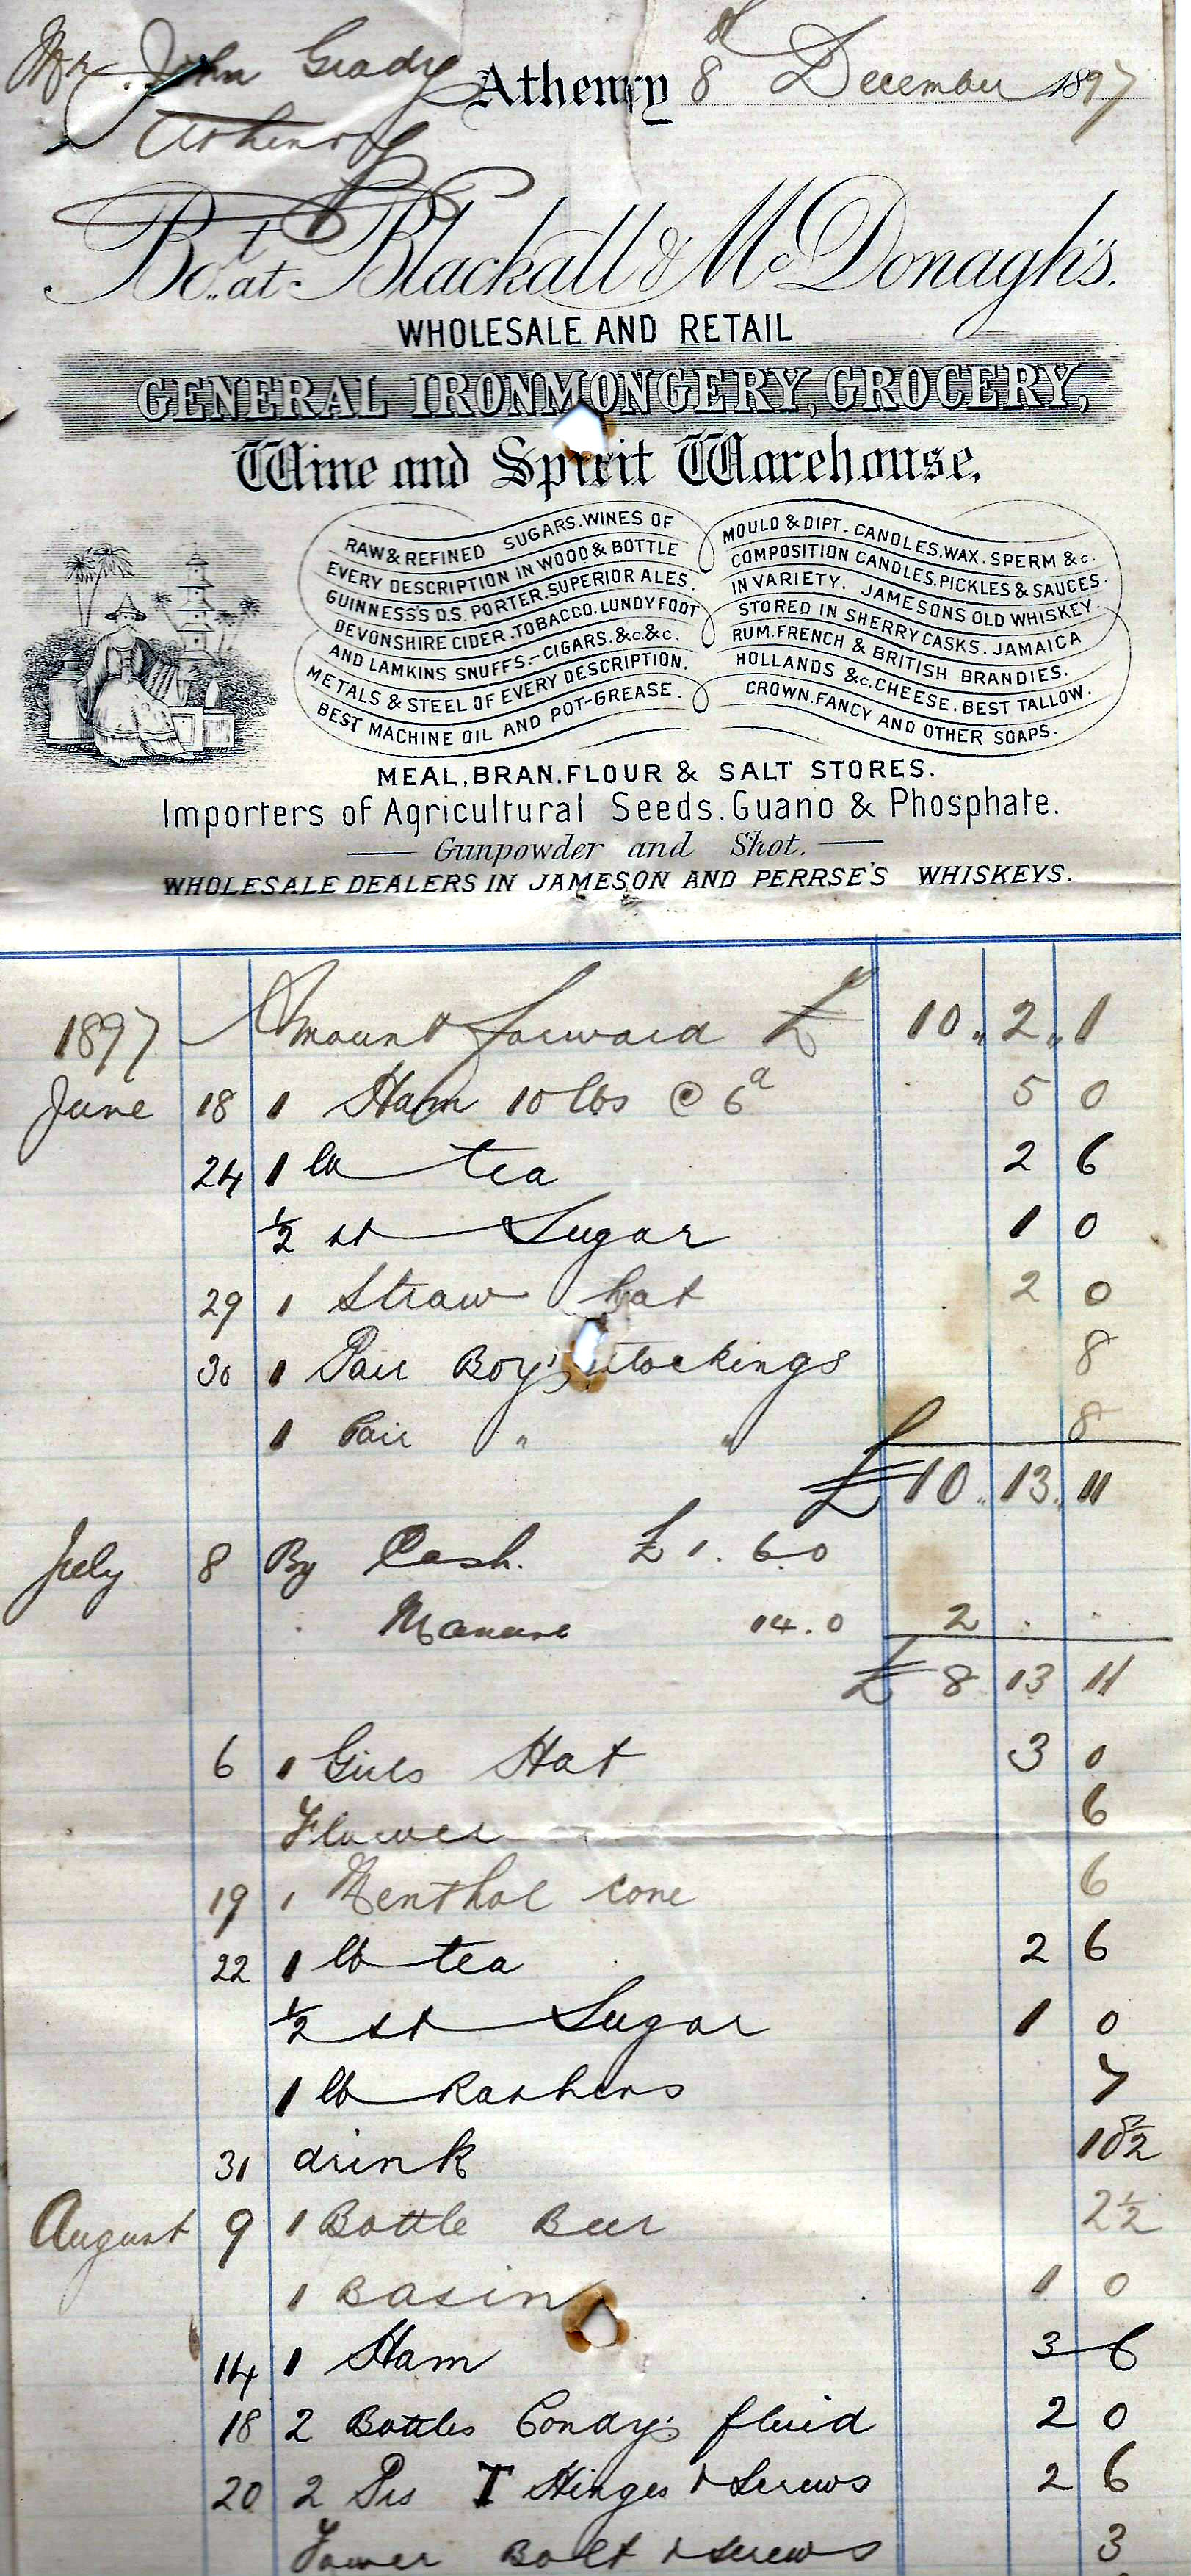 Mr. John Grady
Athenry
Athenry 8th December 1897
Bot. at Blackall & McDonagh's.
WHOLESALE AND RETAIL
GENERAL IRONMONGERY, GROCERY,
Wine and Spirit Warehouse.
RAW & REFINED SUGARS. WINES OF
EVERY DESCRIPTION IN WOOD & BOTTLE
GUINNESS'S D.S. PORTER. SUPERIOR ALES.
DEVONSHIRE CIDER. TOBACCO. LUNDYFOOT
AND LAMKINS SNUFFS.-CIGARS. &c. &c.
METALS & STEEL OF EVERY DESCRIPTION.
BEST MACHINE OIL AND POT-GREASE.
MOULD & DIPT. CANDLES, WAX. SPERM &c.
COMPOSITION CANDLES. PICKLES & SAUCES.
IN VARIETY. JAMESONS OLD WHISKEY.
STORED IN SHERRY CASKS. JAMAICA
RUM. FRENCH & BRITISH BRANDIES.
HOLLANDS &c. CHEESE. BEST TALLOW.
CROWN. FANCY AND OTHER SOAPS.
MEAL, BRAN. FLOUR & SALT STORES.
Importers of Agricultural Seeds. Guano & Phosphate.
Gunpowder and Shot.
WHOLESALE DEALERS IN JAMESON AND PERRSE'S WHISKEYS.
1897 Amount forward £ 10 " 2 " 1
June 18 1 Ham 10 lbs @ 6d 5 0
24 1 lb tea 2 6
½ st Sugar 1 0
29 1 Straw hat 2 0
30 1 Pair Boy's Stockings 8
1 Pair " " 8
£ 10 " 13 " 11
July 8 By Cash. £ 1. 6.0
Manure 14.0 2 . .
£ 8 13 11
6 1 Girls Hat 3 0
Flower 6
19 1 Menthol Cone 6
22 1 lb tea 2 6
½ st Sugar 1 0
1 lb Rashers 7
31 drink
August 9 1 Bottle Beer 2½
1 Basin 1 0
14 1 Ham 3 6
18 2 Bottles Condy's fluid 2 0
20 2 Prs T Hinges & Screws 2 6
Tower Bolt & Screws 3